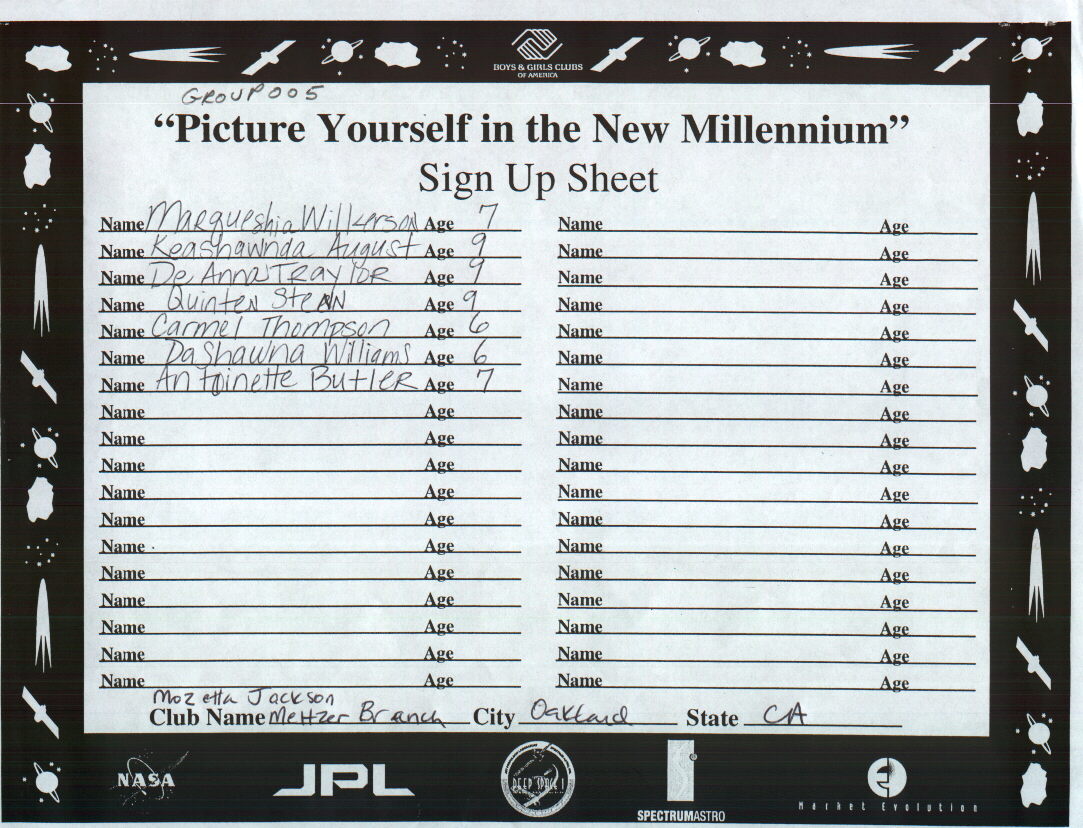 BOYS & GIRLS CLUBS
OF AMERICA
GROUP 005
“Picture Yourself in the New Millennium”
Sign Up Sheet
Name Margueshia Wilkerson Age 7 Name Age
Name Keashawnda August Age 9 Name Age
Name De Anna Traylor Age 9 Name Age
Name Quinten Stean Age 9 Name Age
Name Carmel Thompson Age 6 Name Age
Name DaShawna Williams Age 6 Name Age
Name Antoinette Butler Age 7 Name Age
Name Age Name Age
Name Age Name Age
Name Age Name Age
Name Age Name Age
Name Age Name Age
Name Age Name Age
Name Age Name Age
Name Age Name Age
Name Age Name Age
Name Age Name Age
Name Age Name Age
Mozetta Jackson
Club Name Meltzer Branch City Oakland State CA
NASA JPL DEEP SPACE 1 SPECTRUMASTRO Market Evolution